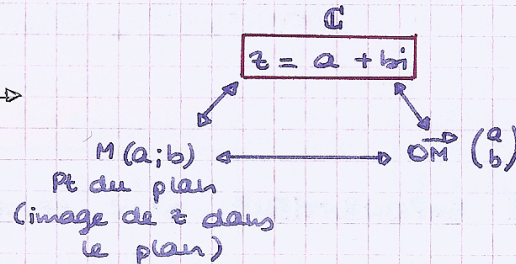 ℂ
z = a + bi
M(a;b)
OM (a
b)
Pt du plan
(image de z dans
le plan)